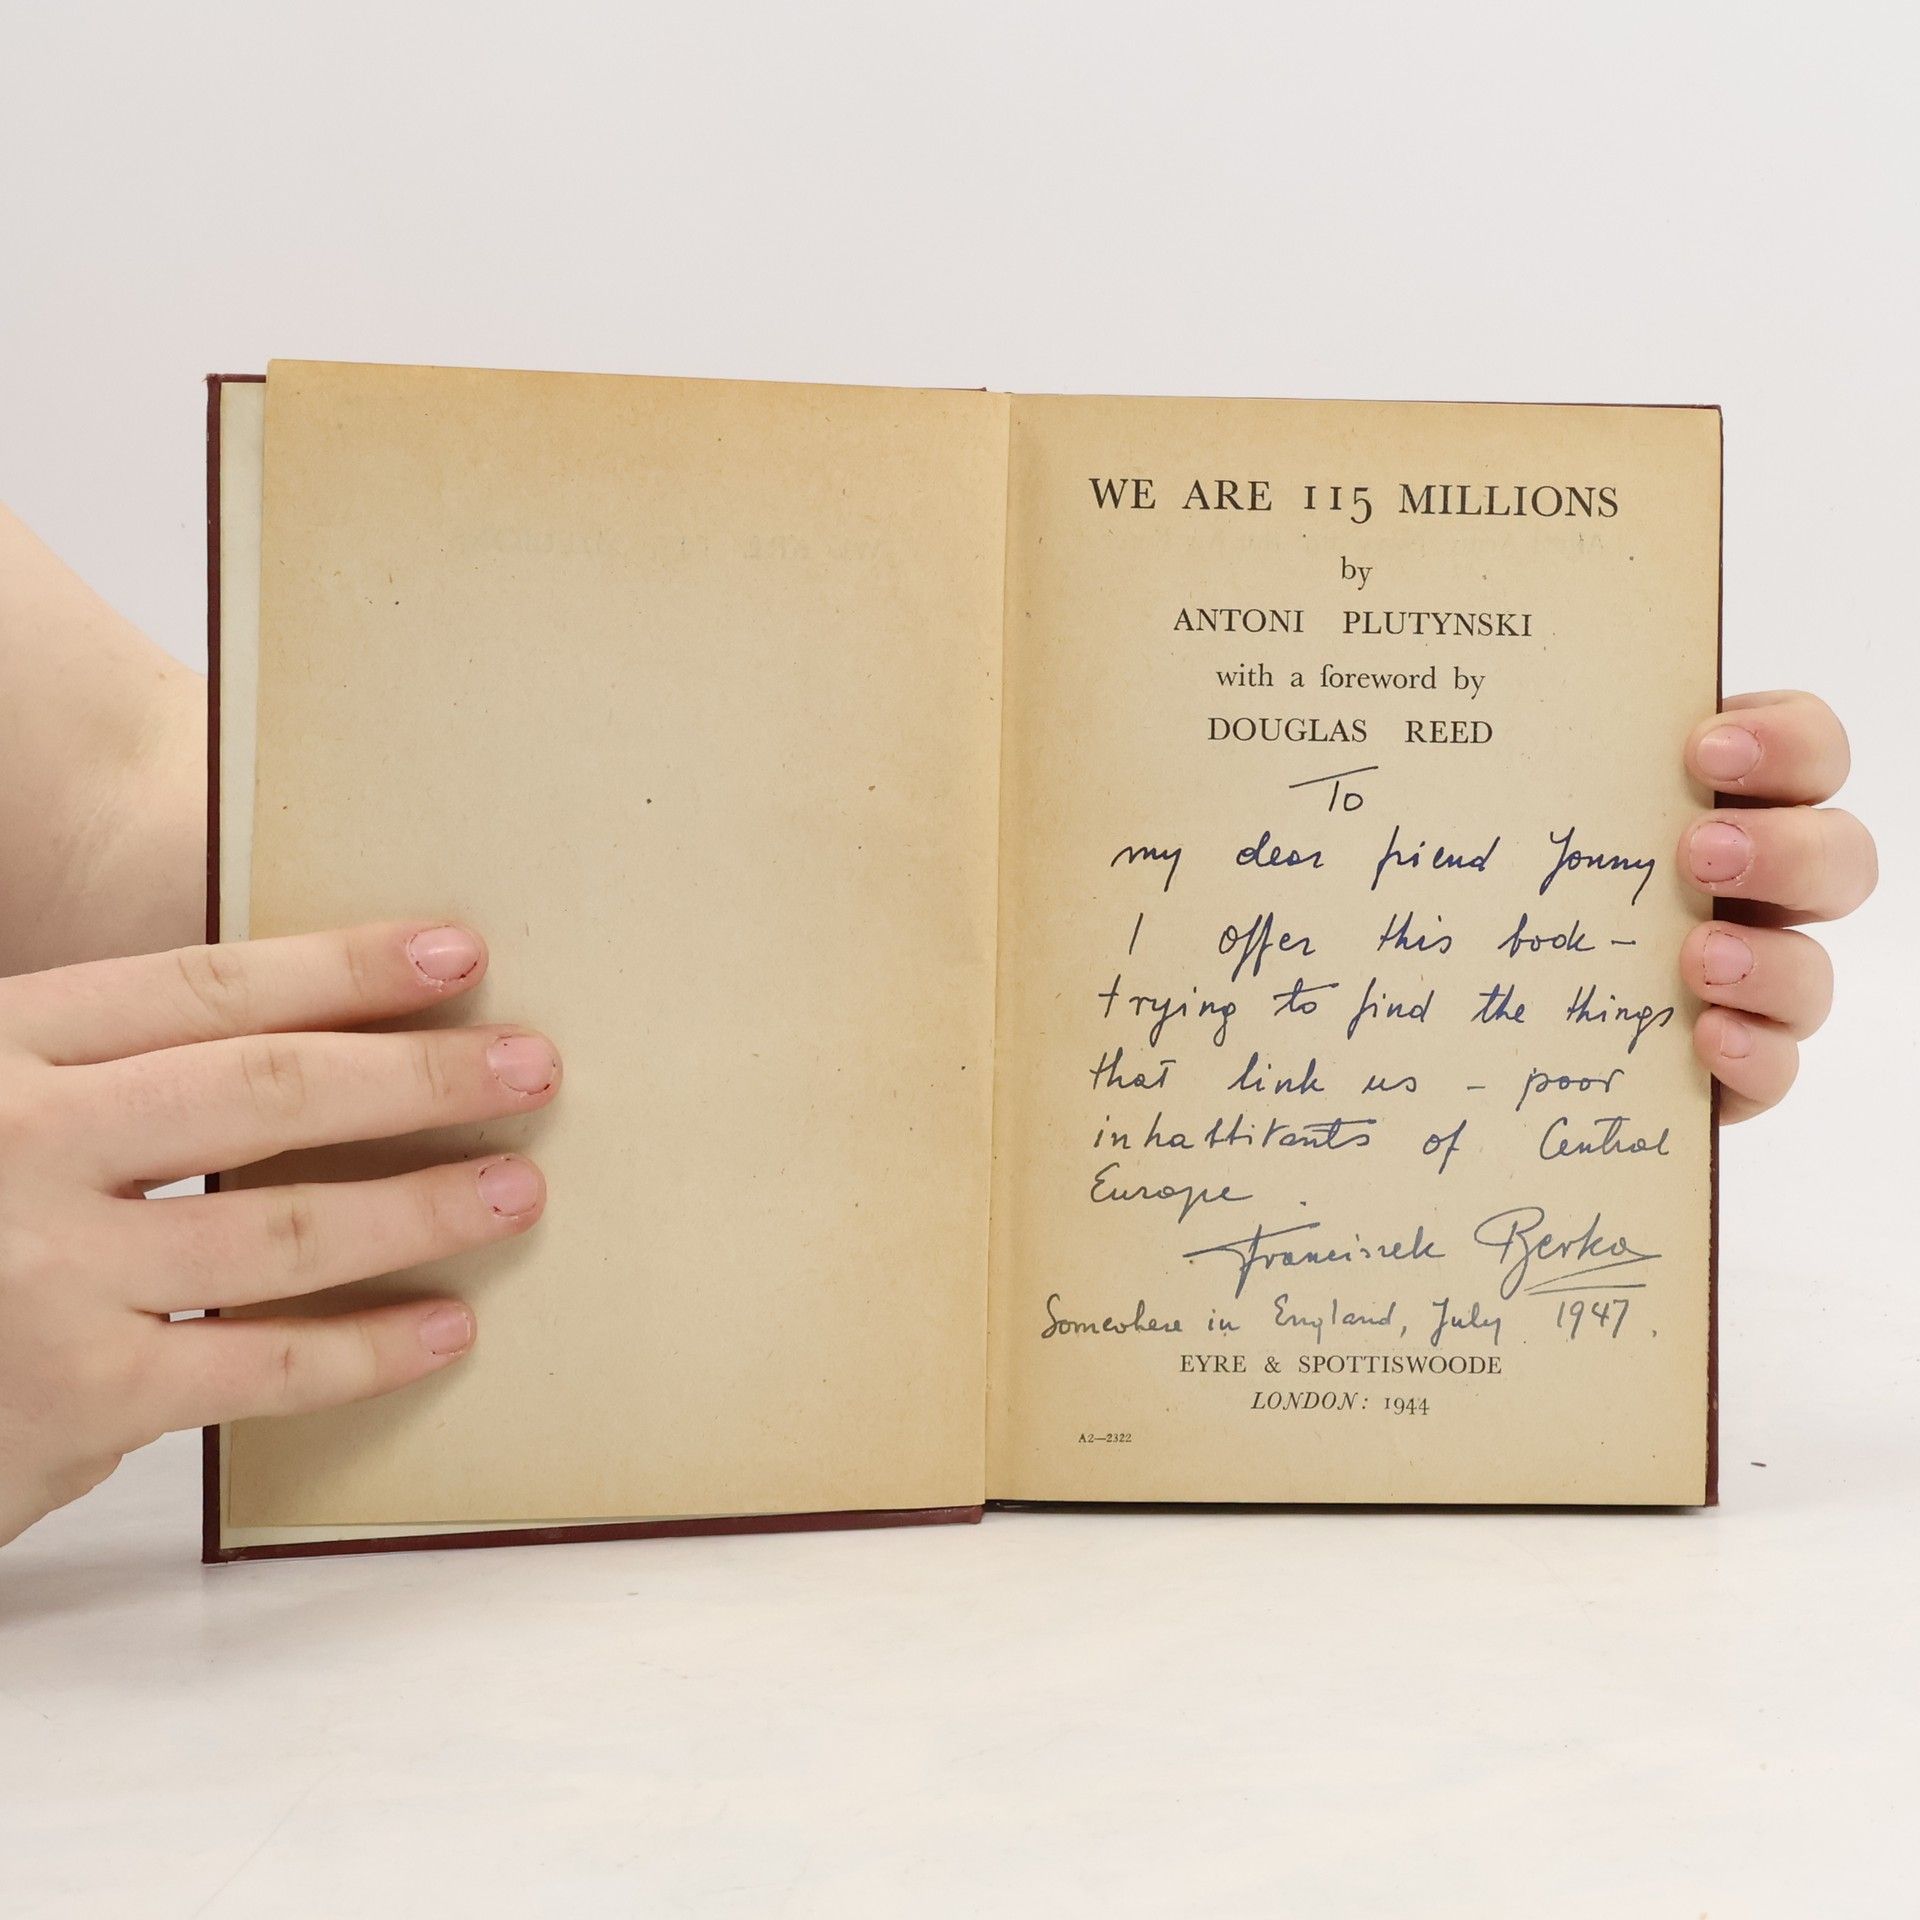 WE ARE 115 MILLIONS
by
ANTONI PLUTYNSKI
with a foreword by
DOUGLAS REED
To
my dear friend Jonny
I offer this book –
trying to find the things
that link us – poor
inhabbitants of Central
Europe .
Franciszek Berka
Somewhere in England, July 1947.
EYRE & SPOTTISWOODE
LONDON: 1944
A2—2322